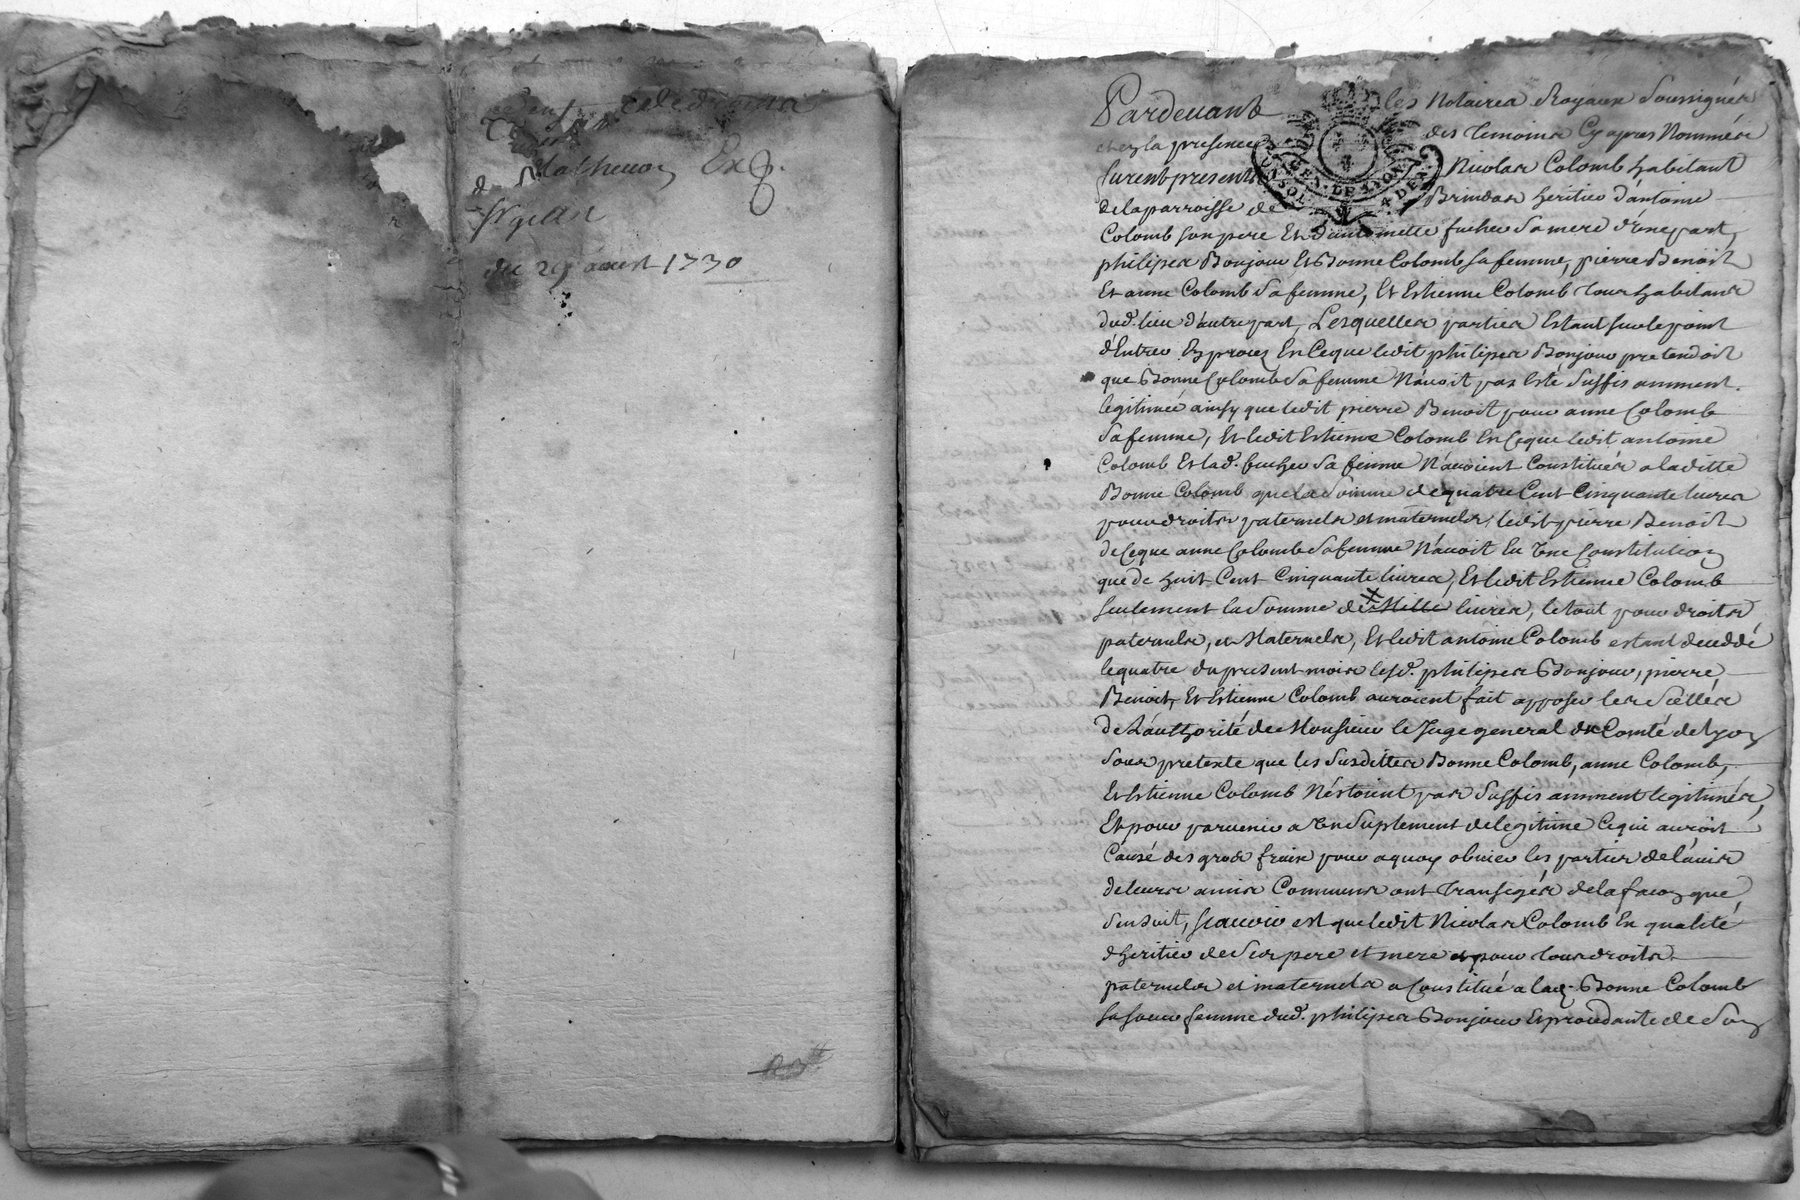 du 29 aoust 1730
Pardevant les Notaires Royaux Soussignés
et en la presence des temoins Cy apres Nommés
furent presents Nicolas Colomb habitant
de la parroisse de Brindas heritier d'antoine
Colomb son pere Et d'antoinette fuchez Sa mere d'une part,
philipes Bonjour Et Bonne Colomb sa femme, pierre Benoit
Et anne Colomb Sa femme, Et Estienne Colomb tous habitans
dud. lieu d'autre part, Lesquelles parties Estant sur le point
d'Entrer En procez En Ce que ledit philipes Bonjour pretendoit
que Bonne Colomb Sa femme N'avoit pas Esté Suffisamment
legitimée ainsy que ledit pierre Benoit pour anne Colomb
Sa femme, Et ledit Estienne Colomb En Ce que ledit antoine
Colomb Et lad. fuchez Sa femme N'avoient Constitués a laditte
Bonne Colomb que la Somme de quatre Cent Cinquante livres
pour droits paternels et maternels, ledit pierre Benoit
de Ce que anne Colomb Sa femme N'avoit Eu Une Constitution
que de huit Cent Cinquante livres, Et ledit Estienne Colomb
seulement la Somme de Mille livres, le tout pour droits
paternels, et Maternels, Et ledit antoine Colomb estant deceddé
le quatre du present mois lesd. philipes Bonjour, pierre
Benoit, Et Estienne Colomb auroient fait apposer les Scellés
de L'authorité de Monsieur le Juge general du Comté de Lyon
Sous pretexte que les Susdittes Bonne Colomb, anne Colomb,
Et Estienne Colomb N'estoient pas Suffisamment legitimés,
Et pour parvenir a Un Suplement de legitime Ce qui auroit
Causé des gros fraix pour a quoy obvier les parties de l'avis
de leurs amis Communs ont Transigés de la facon que
S'en Suit, Scavoir est que ledit Nicolas Colomb En qualité
d'heritier de Ses pere et mere et pour tous droits
paternels et maternels a Constitué a lad. Bonne Colomb
Sa soeur femme dud. philipes Bonjour Et procedante de Son